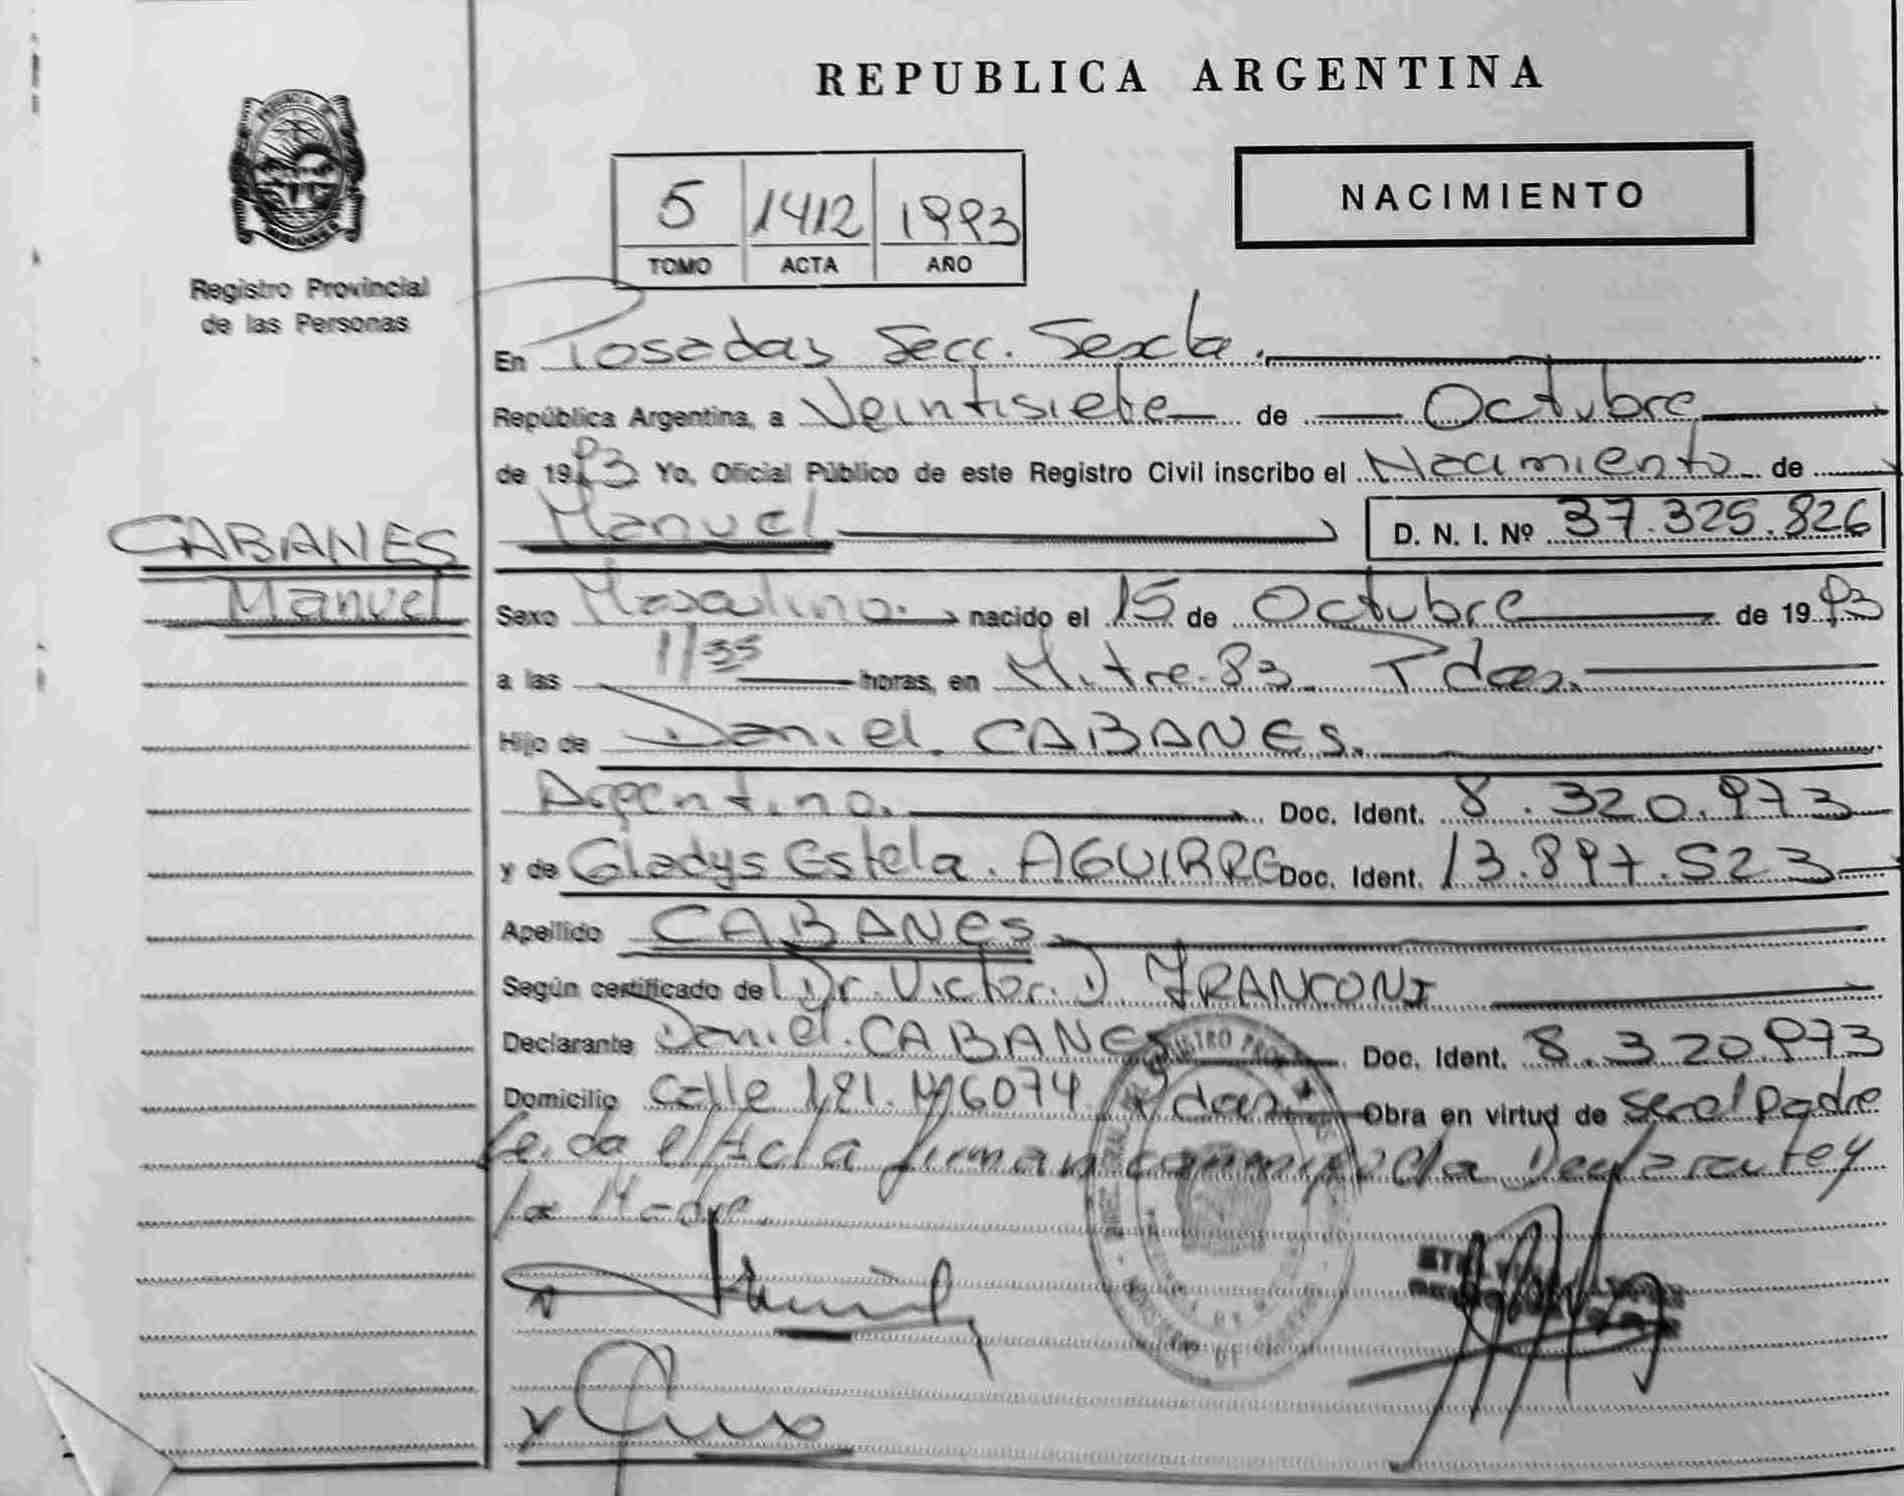 REPUBLICA ARGENTINA
Registro Provincial
de las Personas
5 1412 1993
TOMO ACTA AÑO
NACIMIENTO
En Posadas Secc. Sexta.
República Argentina, a Veintisiete de Octubre
de 1993 Yo, Oficial Público de este Registro Civil inscribo el Nacimiento de
CABANES
Manuel
Manuel D. N. I. Nº 37.325.826
Sexo Masculino. nacido el 15 de Octubre de 1993
a las 11/35 horas, en Mitre 83 Pdas.
Hijo de Daniel CABANES.
Argentino. Doc. Ident. 8.320.973
y de Gladys Estela. AGUIRRE Doc. Ident. 13.897.523
Apellido CABANES
Según certificado de Dr. Victor. D. FRANCONI
Declarante Daniel. CABANES Doc. Ident. 8.320.973
Domicilio Calle 191. Nº 6074 Pdas. Obra en virtud de Ser el Padre
Leida el Acta firman conmigo el Declarante y
la Madre.